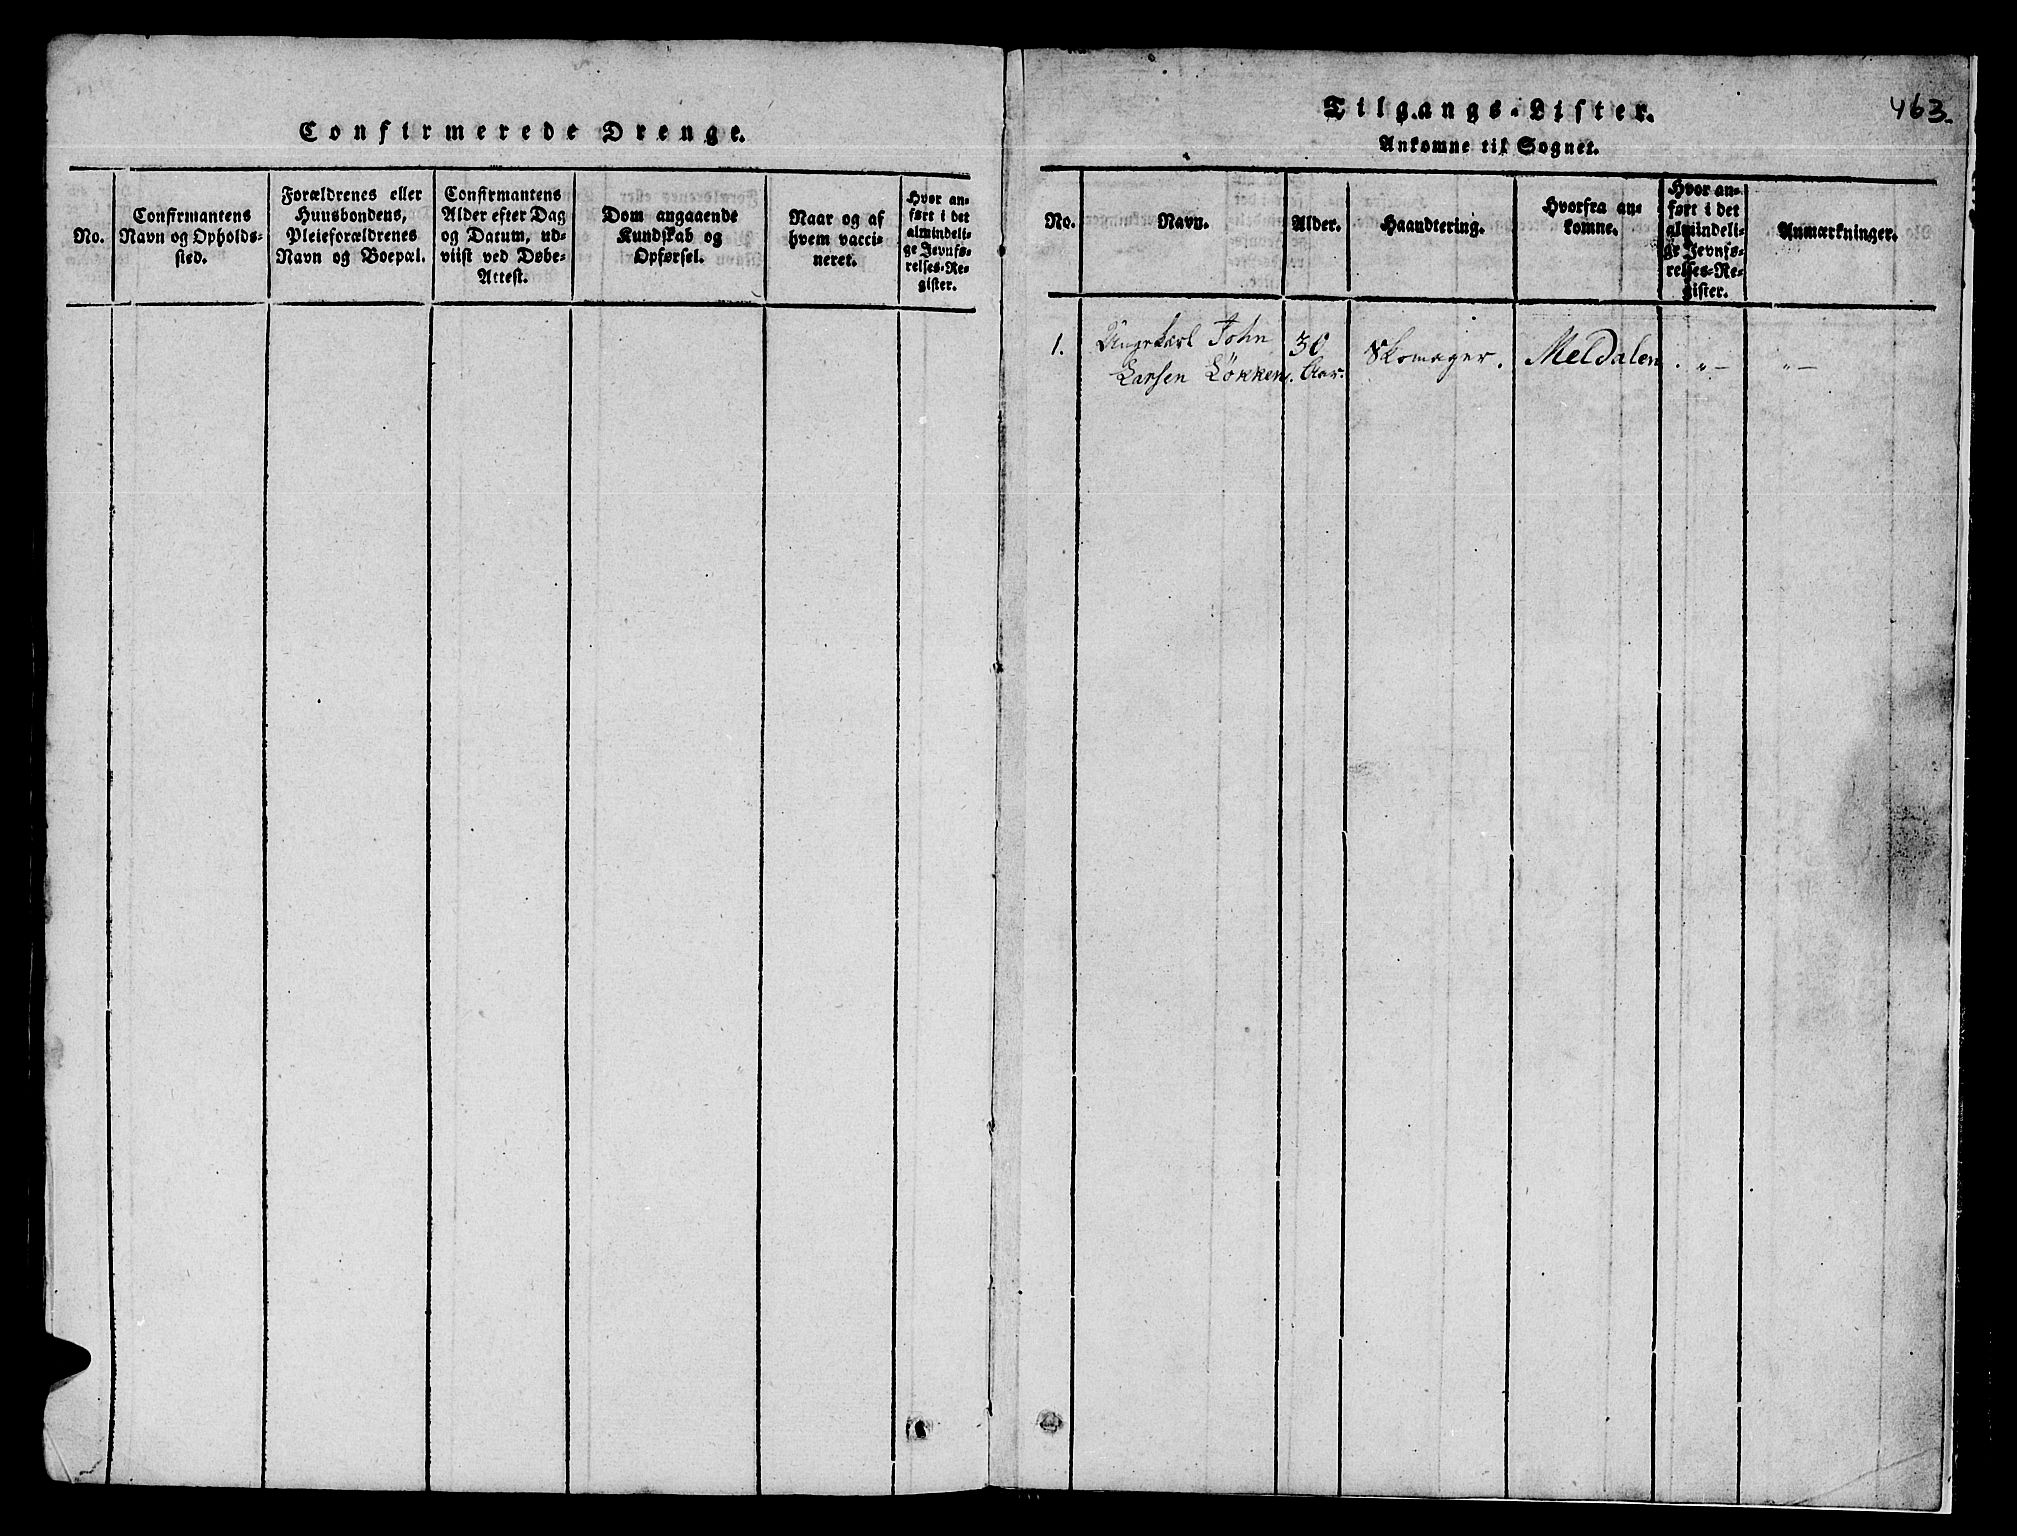 Confirmerede Drenge.
No.
Confirmantens
Navn og Opholds-
sted.
Forældrenes eller
Huusbondens,
Pleieforældrenes
Navn og Boepæl.
Confirmantens
Alder efter Dag
og Datum, ud-
viist ved Døbe-
Attest.
Dom angaaende
Kundskab og
Opførsel.
Naar og af
hvem vacci-
neret.
Hvor an-
ført i det
almindeli-
ge Jevnfø-
relses-Re-
gister.
463.
Tilgangs-Lister.
Ankomne til Sognet.
No.
Navn.
Alder.
Haandtering.
Hvorfra an-
komne.
Hvor an-
ført i det
almindeli-
ge Jevnfø-
relses-Re-
gister.
Anmærkninger.
1. Ungekarl John 30 Skomager. Meldalen. „— „—
Larsen Løkken. Aar.